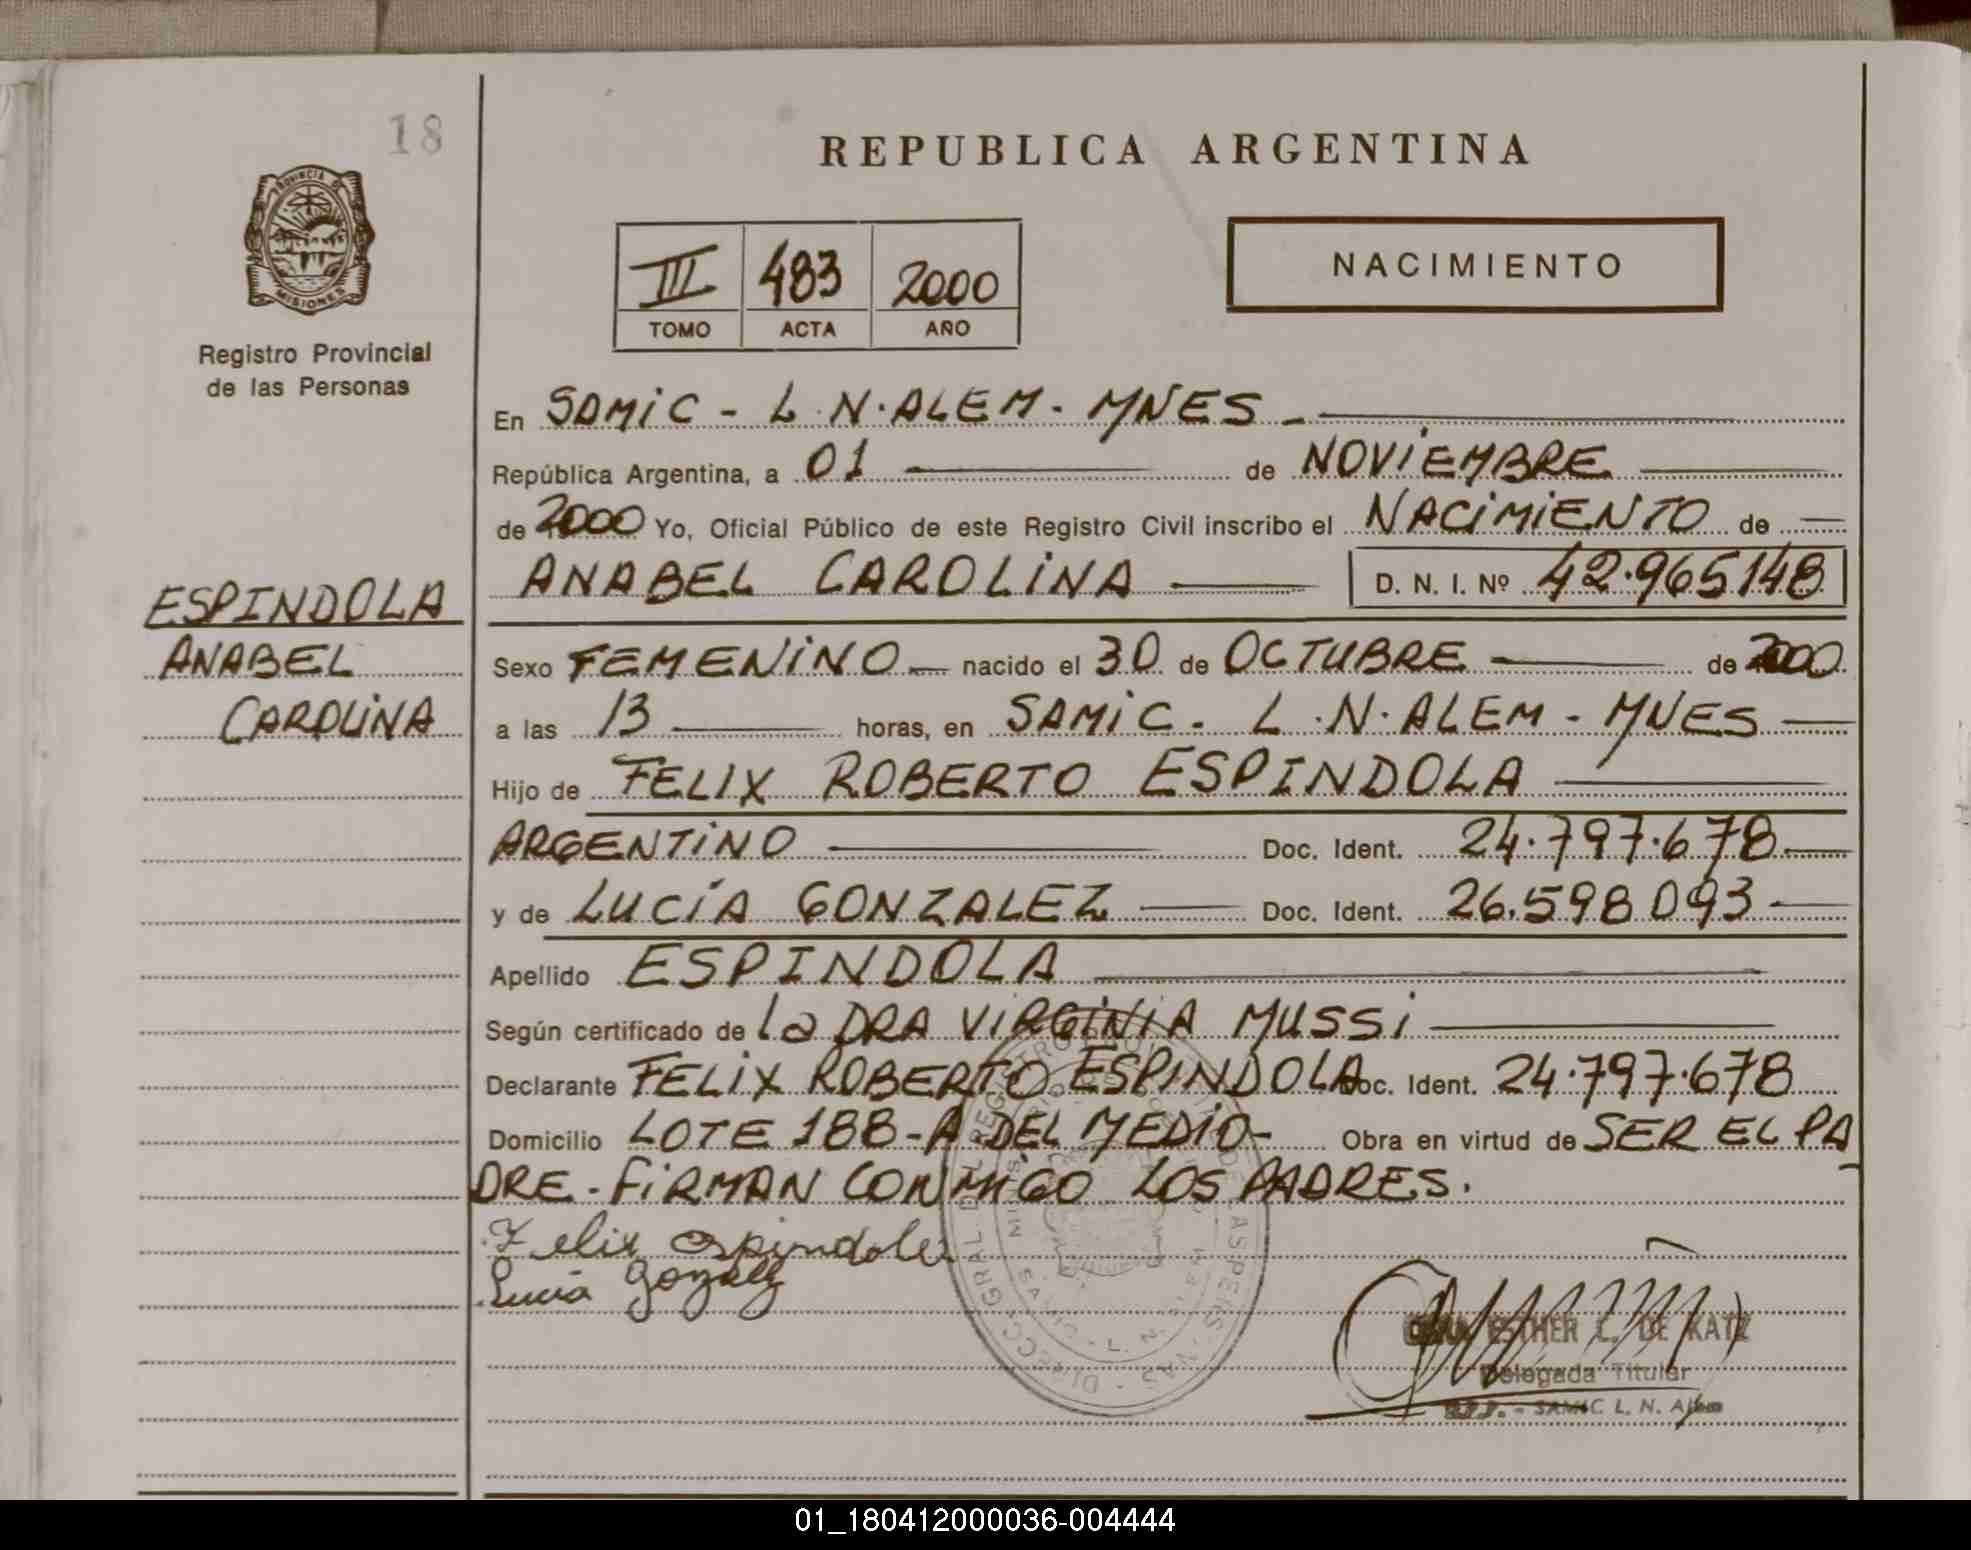 18
REPUBLICA ARGENTINA
PROVINCIA DE
MISIONES
III 483 2000
TOMO ACTA AÑO
NACIMIENTO
Registro Provincial
de las Personas
En SAMIC - L.N.ALEM - MNES -
República Argentina, a 01 de NOVIEMBRE
de 2000 Yo, Oficial Público de este Registro Civil inscribo el NACIMIENTO de
ANABEL CAROLINA D. N. I. Nº 42.965148
ESPINDOLA
ANABEL
CAROLINA
Sexo FEMENINO nacido el 30 de OCTUBRE de 2000
a las 13 horas, en SAMIC - L.N.ALEM - MNES
Hijo de FELIX ROBERTO ESPINDOLA
ARGENTINO Doc. Ident. 24.797.678
y de LUCÍA GONZALEZ Doc. Ident. 26.598.093
Apellido ESPINDOLA
Según certificado de la DRA VIRGINIA MUSSI
Declarante FELIX ROBERTO ESPINDOLA Doc. Ident. 24.797.678
Domicilio LOTE 188-A DEL MEDIO- Obra en virtud de SER EL PA
DRE - FIRMAN CONMIGO LOS PADRES.
Felix espindola
Lucia Gonzalez
ESTHER L. DE KATZ
Delegada Titular
SAMIC L. N. Alem
01_180412000036-004444